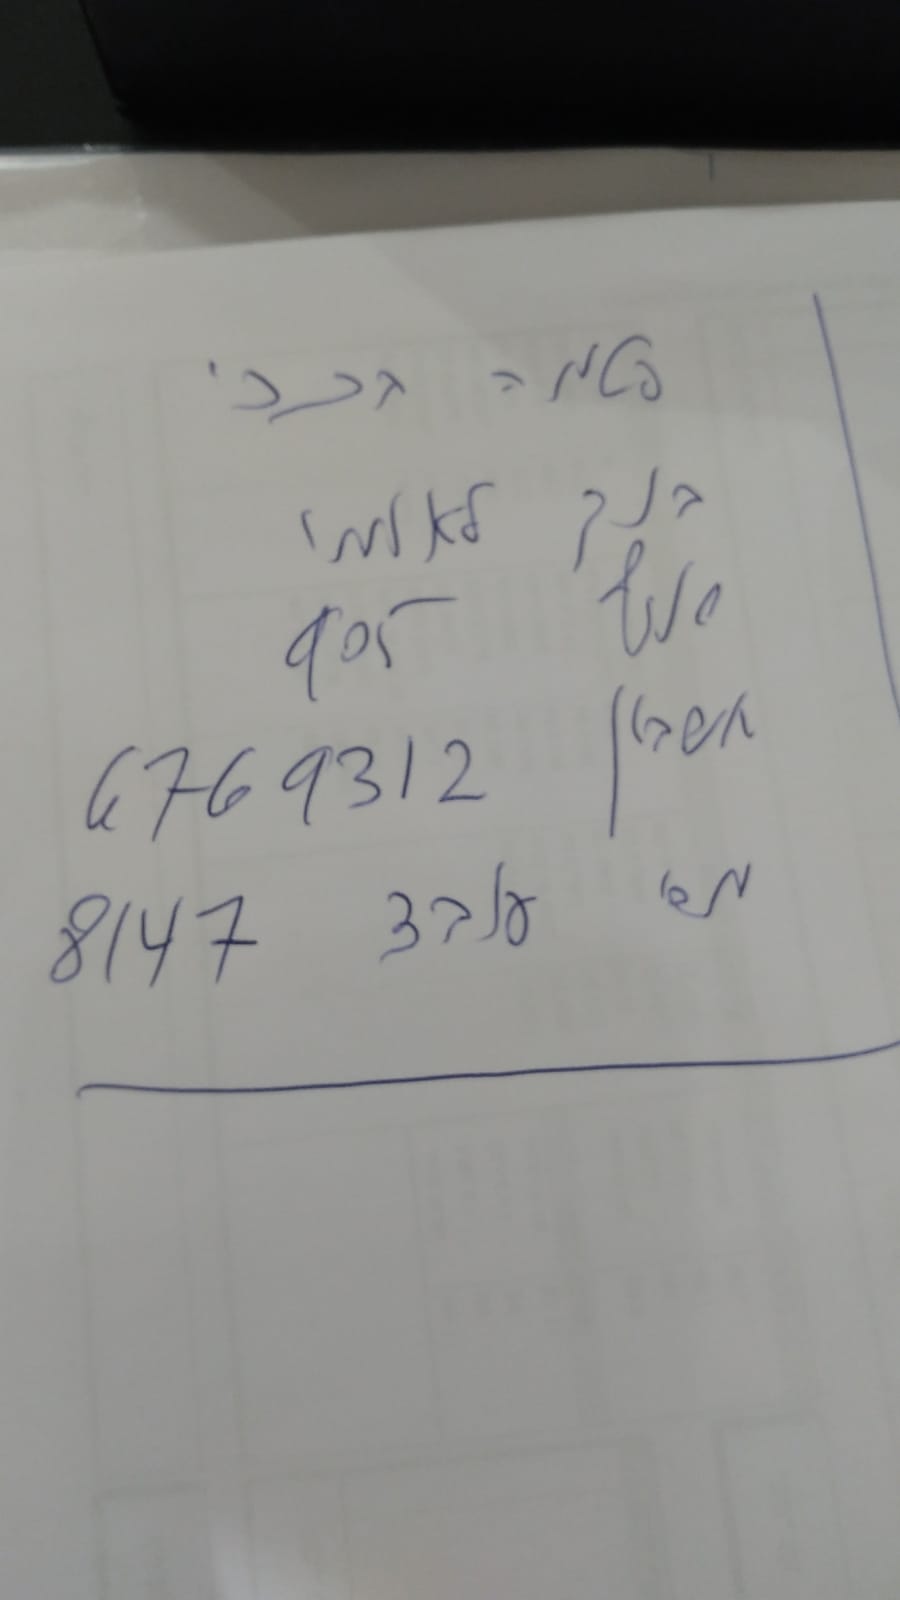 פטמה
בנק לאומי
סניף 905
חשבון 6769312
מס' עובד 8147